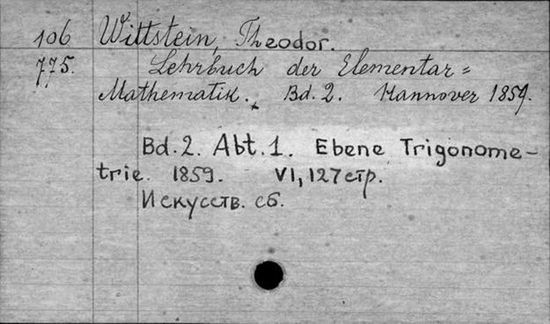 106 Wittstein, Theodor.
775. Lehrbuch der Elementar=
Mathematik. Bd. 2. Hannover 1859.
Bd. 2. Abt. 1. Ebene Trigonome-
trie. 1859. VI, 127 стр.
Искусств. сб.